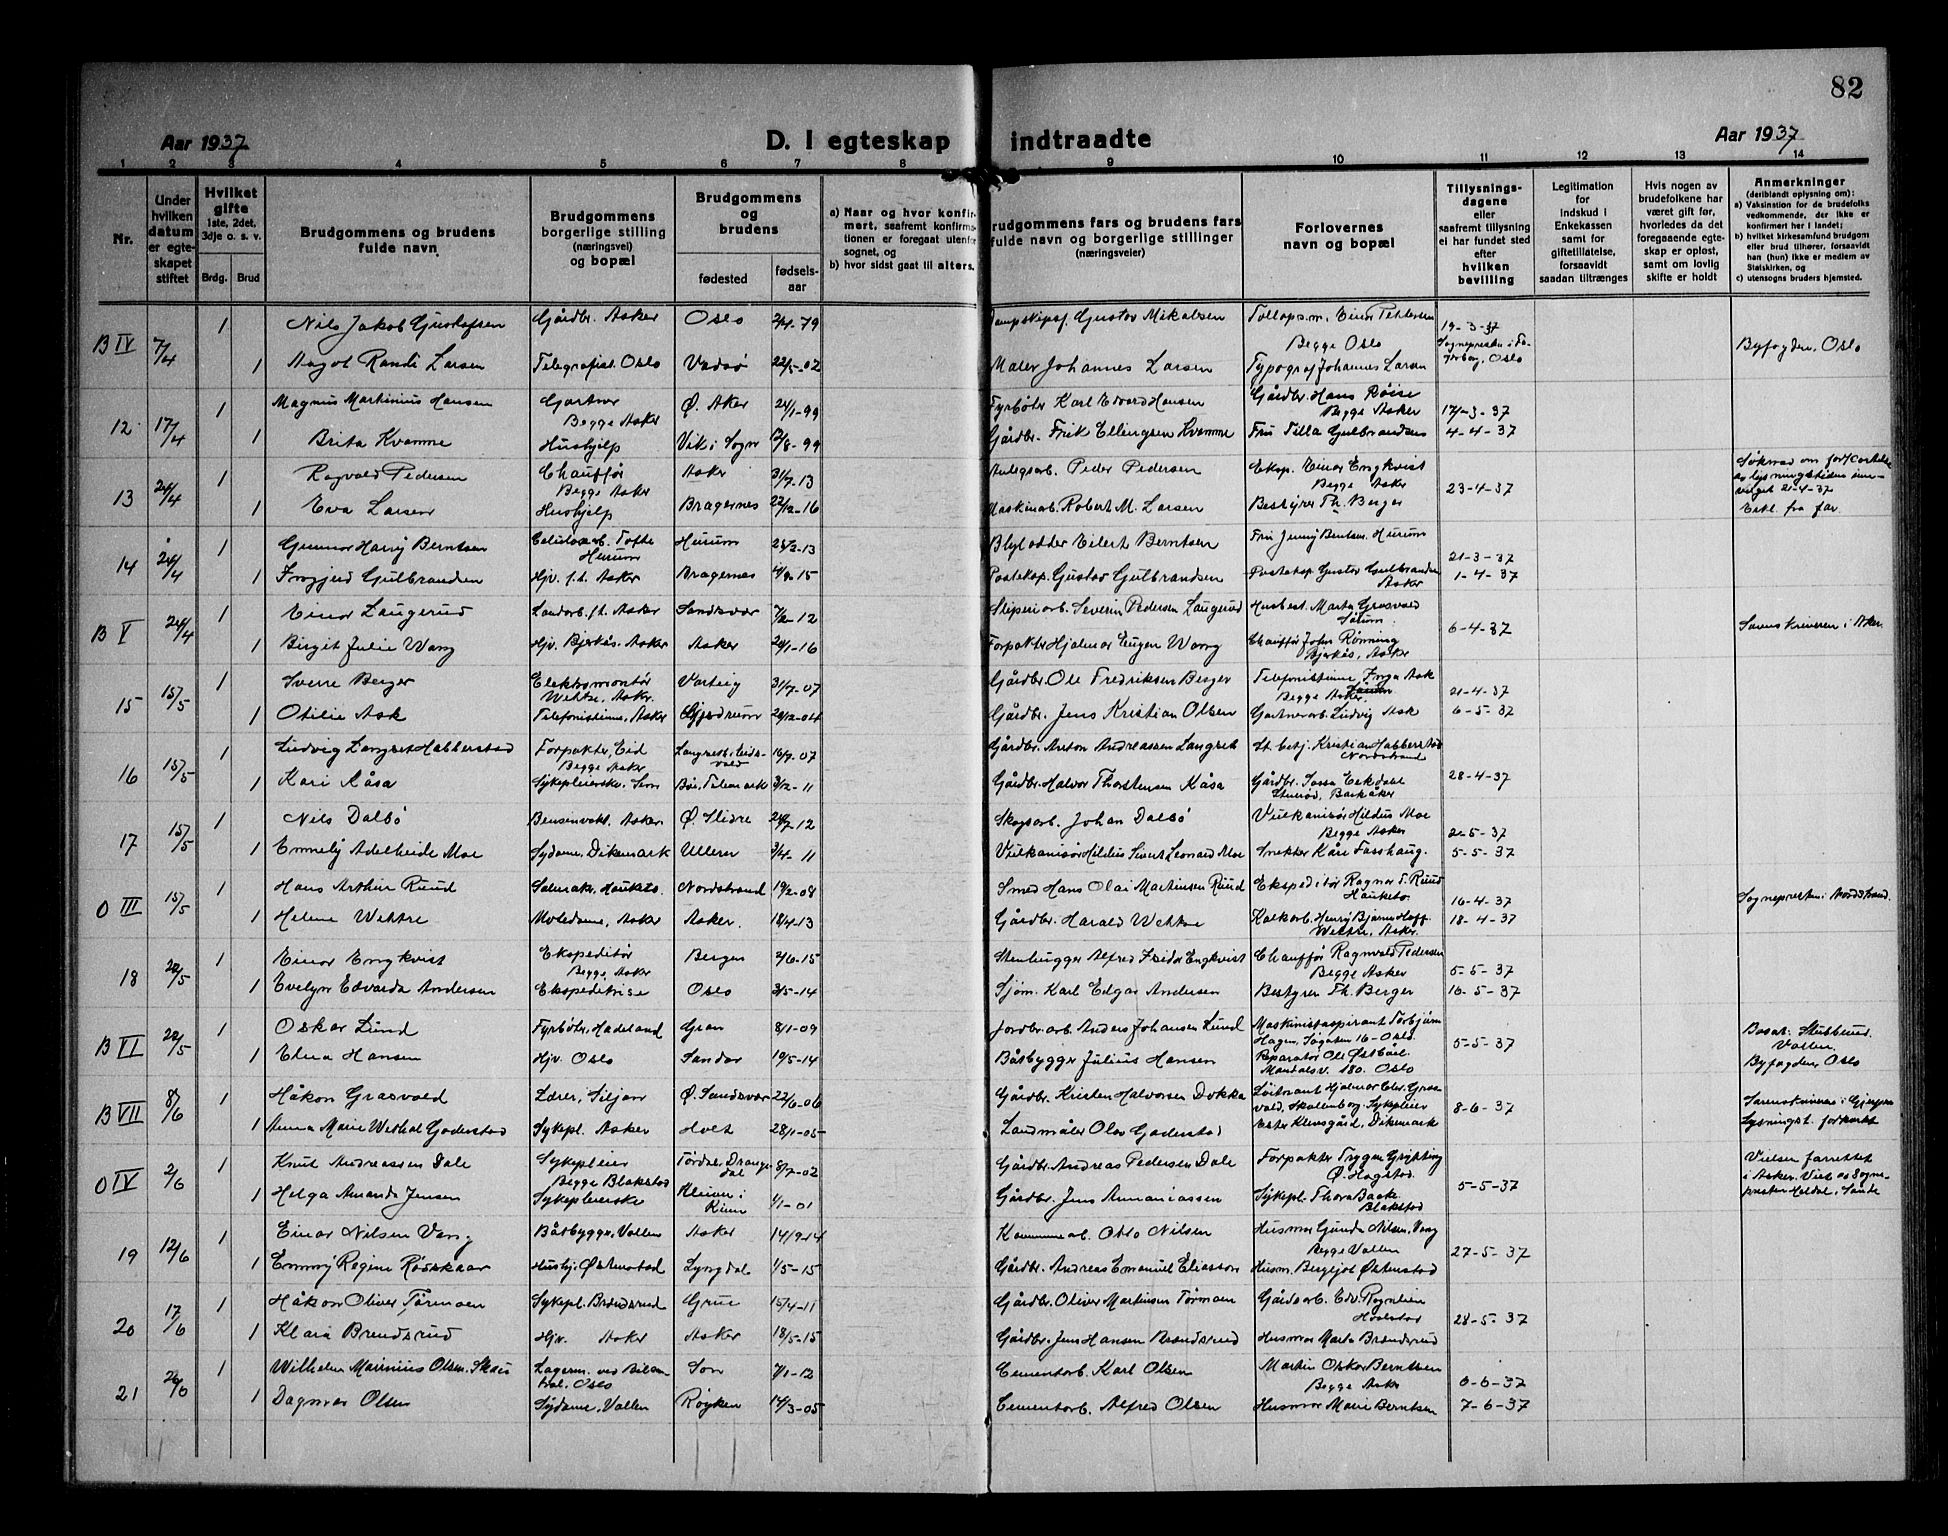 82
Aar 1937
D. I egteskap indtraadte
Aar 1937
1 2 3 4 5 6 7 8 9 10 11 12 13 14
Nr.
Under hvilken datum er egteskapet stiftet
Hvilket gifte 1ste, 2det, 3dje o. s. v.
Brdg. Brud
Brudgommens og brudens fulde navn
Brudgommens borgerlige stilling (næringsvei) og bopæl
Brudgommens og brudens
fødested
fødselsaar
a) Naar og hvor konfirmert, saafremt konfirmationen er foregaat utenfor sognet, og
b) hvor sidst gaat til alters.
rudgommens fars og brudens fars fulde navn og borgerlige stillinger (næringsveier)
Forlovernes navn og bopæl
Tillysningsdagene eller saafremt tillysning ei har fundet sted efter hvilken bevilling
Legitimation for indskud i Enkekassen samt for giftetillatelse, forsaavidt saadan tiltrænges
Hvis nogen av brudefolkene har været gift før, hvorledes da det foregaaende egteskap er opløst, samt om lovlig skifte er holdt
Anmerkninger (deriblandt oplysning om):
a) Vaksination for de brudefolks vedkommende, der ikke er konfirmert her i landet;
b) hvilket kirkesamfund brudgom eller brud tilhører, forsaavidt han (hun) ikke er medlem av Statskirken, og
c) utensogns bruders hjemsted.
B IV 7/4 1 Nils Jakob Gustafsen Gårdbr. Asker Oslo 2/4-79 Gustav Mikalsen Einar Pettersen Begge Oslo 19-3-37 Byfogden, Oslo
1 Aagot Randi Larsen Telegrafist. Oslo Vadsø 22/5-02 Maler Johannes Larsen Typograf Johannes Larsen
12 17/4 1 Magnus Martinius Hansen Gartner Begge Asker Ø. Aker 24/1-99 Fyrbøter Karl Edvard Hansen Gårdbr. Hans Røise Begge Asker 17-3-37
1 Brita Kvamme Hushjelp Vik i Sogn 12/8-99 Gårdbr. Erik Ellingsen Kvamme Fru Tilla Gulbrandsen 4-4-37
13 24/4 1 Ragvald Pedersen Chauffør Begge Asker Asker 31/7-13 Anlegsarb. Peder Pedersen Eksp. Einar Engkvist Begge Asker 23-4-37 Søknad om av lysningstiden innvilget 21-4-37
1 Eva Larsen Hushjelp Bragernes 22/12-16 Maskinarb. Robert M. Larsen Bestyrer Th. Berger Erkl. fra far.
14 24/4 1 Gunnar Harry Berntsen Tofte Hurum Hurum 25/2-13 Eilert Berntsen Fru Jenny Berntsen. Hurum 21-3-37
1 Ingjerd Gulbrandsen Hjv. f.t. Asker Bragernes 4/9-15 Posteksp. Gustav Gulbrandsen Posteksp. Gustav Gulbrandsen Asker 1-4-37
B V 24/4 1 Einar Laugerud Landarb. f.t. Asker Sandsvær 7/2-12 Sliperiarb. Severin Pedersen Laugerud Husbest. Marta Grasvold 6-4-37 Sorenskriveren i Aker.
1 Birgit Julie Wang Hjv. Bjerkås. Asker Asker 24/1-16 Forpakter Hjalmar Eugen Wang Chauffør John Rønning Bjerkås, Asker
15 15/5 1 Sverre Berger Elektromontør Wettre, Asker. Varteig 31/7-07 Gårdbr. Ole Fredriksen Berger Telefonistinne Inga Ask Begge Asker 21-4-37
1 Otilie Ask Telefonistinne, Asker Gjerdrum 20/12-04 Gårdbr. Jens Kristian Olsen Gartnerarb. Ludvig Ask 6-5-37
16 15/5 1 Ludvig Langset Habberstad Forpakter, Eid Begge Asker Langset i Eidsvold 16/9-07 Gårdbr. Anton Andreassen Langset St. betj. Kristian Habberstad Nordstrand
1 Kari Kåsa Sykepleierske. Sem Bø, Telemark 3/12-11 Gårdbr. Halvor Thorstensen Kåsa Gårdbr. Eekdale 28-4-37
17 15/5 1 Nils Dalbö Bensinvakt. Asker Ø. Slidre 24/7-12 Skogsarb. Johan Dalbö Vulkanisør Hildus Moe Begge Asker 2-5-37
1 Emmely Adelheide Moe Sydame, Dikemark Ullern 3/4-11 Vulkanisør Hildus Sivert Leonard Moe Snekker Kåre Fosshaug. 5-5-37
O III 15/5 1 Hans Arthur Ruud Salmak. Hauketo. Nordstrand 19/2-08 Smed Hans Olai Martinsen Ruud Ekspeditør Ragnar T. Ruud Hauketo. 16-4-37 Sogneprest i Nordstrand.
1 Helene Wettre Motedame, Asker Asker. 18/4-13 Gårdbr. Harald Wettre Kalkarb. Henry Bjarne Hoff. Wettre, Asker. 18-4-37
18 22/5 1 Einar Engkvist Ekspeditør Begge Asker Bergen 2/6-15 Stenhugger Alfred Fridor Engkvist Chauffør Ragnvald Pedersen Begge Asker 5-5-37
1 Evelyn Edvarda Andersen Ekspeditrise Oslo 3/5-14 Sjøm. Karl Edgar Andersen Bestyrer Th. Berger 16-5-37
B VI 22/5 1 Oskar Lund Fyrbøter, Hadeland Gran 8/1-09 Jordbr.arb. Anders Johansen Lund Maskinistaspirant Torbjørn Hagen, 16-Oslo. 5-5-37 Bosat: Stubberud. Vollen.
1 Elna Hansen Hjv. Oslo Sandar 19/5-14 Båtbygger Julius Hansen Reparatør Ole Østbåe. Mandalsv. 180. Oslo Byfogden, Oslo
B VII 8/6 1 Håkon Grasvold Lærer, Siljan Ø. Sandsvær 22/6-06 Gårdbr. Kristen Halvorsen Dokka Løitnant Hjalmar Chr. Grasvold, Sykepleier Ester Klevsgård, Dikemark 8-6-37 Sorenskriveren i Gjerpen
1 Anna Marie Wethal Goderstad Sykepl. Asker Holt 28/1-05 Landmåler Olav Goderstad Lysningst. forkortet
O IV 2/6 1 Knut Andreassen Dale Sykepleier Begge Blakstad Tørdal, Drangedal 8/7-02 Gårdbr. Andreas Pedersen Dale Forpakter Trygve Ø. Hogstad. Vielsen forrettet i Asker. Viet av Sogneprest
1 Helga Amanda Jensen Sykepleierske 1/1-01 Gårdbr. Jens Annaniassen Sykepl. Thora Back. Blakstad 5-5-37
19 12/6 1 Einar Nilsen Vang Båtbygge, Vollen Asker 14/9-14 Kommunearb. Oslo Nilsen Husmor Gunda Nilsen, Vang Begge Vollen 27-5-37
1 Emmy Regine Røiskaar Hushj. Østenstad Lyngdal 1/5-15 Gårdbr. Andreas Emanuel Eliassen Husm. Bergljot Østenstad
20 17/6 1 Håkon Oliver Tørmoen Sykepl. Brendsrud Grue 15/4-11 Gårdbr. Oliver Martinsen Tørmoen Gårdsarb. Edv. Rognlien 28-5-37
1 Klara Brendsrud Hjv. Asker Asker 18/5-15 Gårdbr. Jens Hansen Brendsrud Husmor Marta Brendsrud
21 26/6 1 Wilhelm Marinius Olsen. Skaus Lagerm. ved Oslo Son 7/1-12 Cementarb. Karl Olsen Martin Oskar Berntsen Begge Asker 6-6-37
1 Dagmar Olsen Sydame, Vollen Røyken 14/3-05 Cementarb. Alfred Olsen Husmor Marie Berntsen 7-6-37